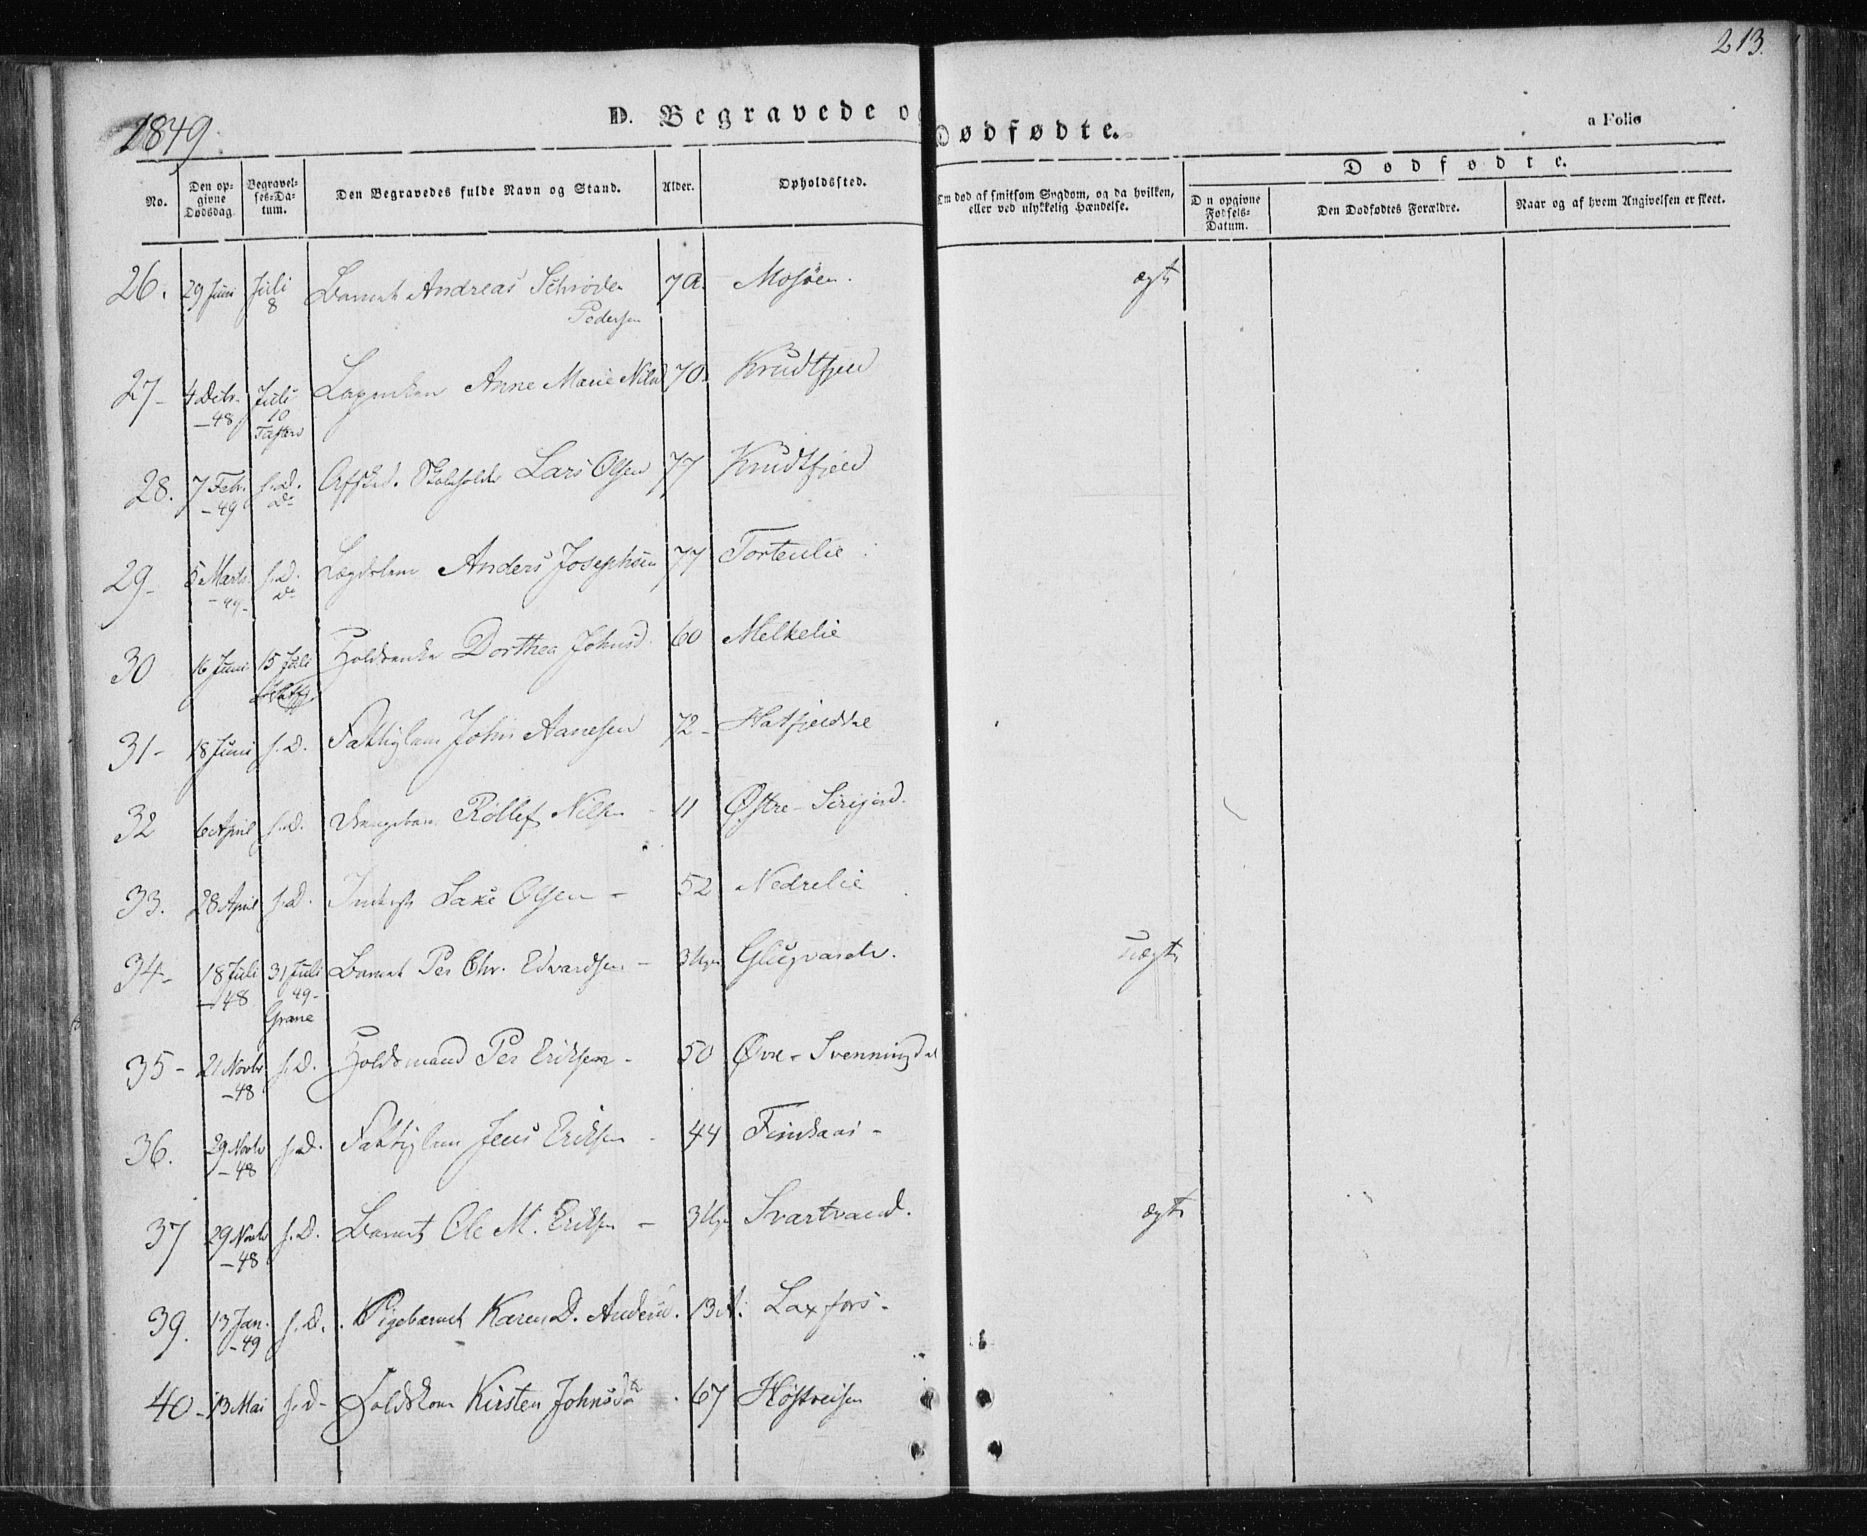 213.
1849.
D. Begravede o Dødfødte.
a Folio
No.
Den op-
givne
Dødsdag.
Begravel-
ses-Da-
tum.
Den Begravedes fulde Navn og Stand.
Alder.
Opholdssted.
Om død af smitsom Sygdom, og da hvilken,
eller ved ulykkelig Hændelse.
Dødfødte.
D n opgivne
Fødsels-
Datum.
Den Dødfødtes Forældre.
Naar og af hvem Angivelsen er skeet.
26. 29 Juni Juli 8 Barnet Andreas Schrøder Pedersen 7 A. Mosøen. ægte
27- 4 Decbr. -48 Juli 10 Anne Marie Nilsd 70. Krudtfjeld
28. 7 Febr. -49 s.D. Do Lars Olsen 77 Krudtfjeld
29- 5 Marts -49- s.D. Do Lægdslem Anders Josephsen 77 Tortenlie
30 16 Juni 15 Juli Dorthea Johnsd. 60 Melkelie
31- 18 Juni s.D. Fattiglem John Aanesen 72- Hatfjelddal
32 6 April s.D. Rollef Nilsen - 11 Østre-
33. 28 April s.D. Inderst Olsen - 52 Nedrelie
34- 18 Juli -48 31 Juli 49- Grane Barnet Per Chr. Edvardsen - 3 Uger Glugvasdr. uægte
35- 21 Novbr -48 s.D. Holdsmand Per Eriksen - 50 Øvre-Svenningdal
36. 29 Novbr -48 s.D. Fattiglem Jens Eriksen - 44 -
37 29 Novbr -48 s.D. Barnet Ole M. Eriksen - 3 Uger Svartvand. ægte
39. 13 Jan. -49 s.D. Pigebarnet Karen D. Andersd. 13 A. Laxfors-
40- 13 Mai s.D- Kirsten Johnsda 67